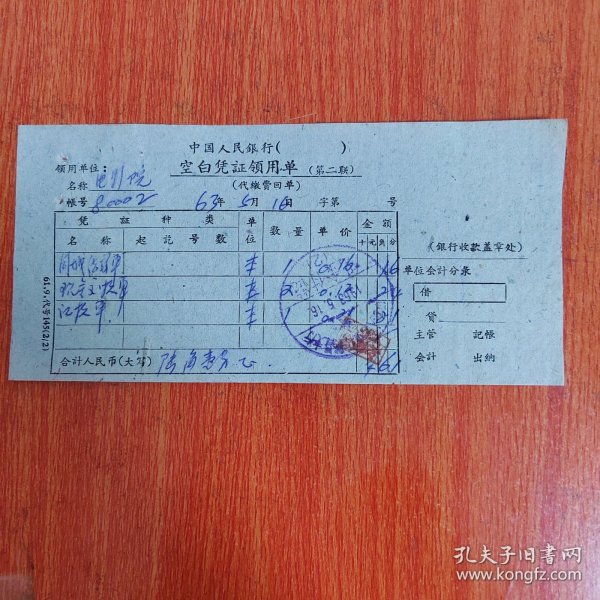 中国人民银行( )
空白凭证领用单 (第二联)
(代缴费回单)
领用单位:
名称 电影院
帐号 80002
63年5月16日 字第 号
凭证种类 单位 数量 单价 金额
名称 起讫号数 十元角分
本 1 0.16 16
本 2 0.12 24
本 1 21
合计人民币(大写) 陆角壹分正 61
(银行收款盖章处)
单位会计分录
借
贷
主管 记帐
会计 出纳
61.9.(代号145(2/2)
孔夫子旧书网
www.kongfz.com